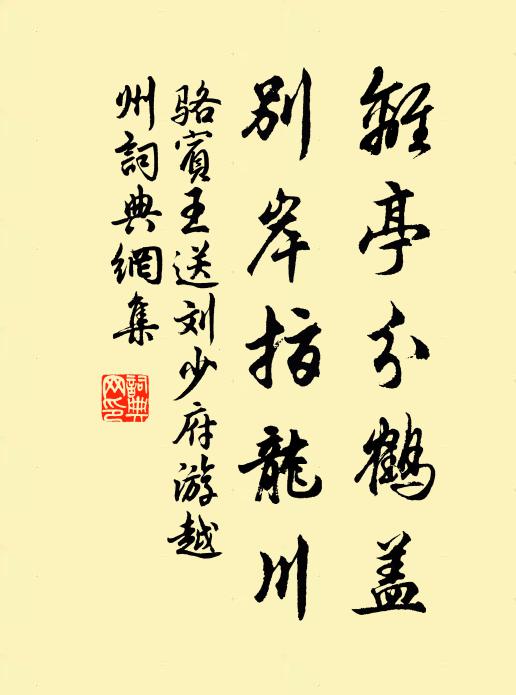 離亭分鶴盖
别岸指龍川
骆賓王送刘少府游越
州詞典網集
詞典
网印